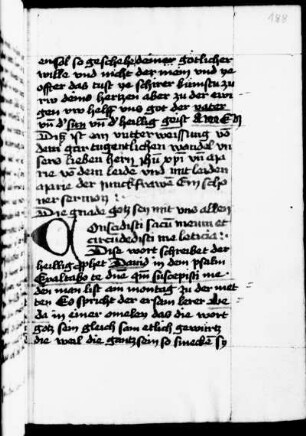 188
ensol so geschehe deiner gotlicher
wille vnd nicht der mein vnd ye
offter das tust ye schirer kumstu zu
rw deins hertzen aber zu der ewi
gen rw helff vns got der vater
vñ d' sun vñ d' heilig geist Amen
Diß ist ain vnterweissung võ
dem gar tugentlichen wandel vn
sers lieben hern ihũ xp̃i vñ
võ dem leide vnd mitleiden
marie der junckfrawẽ Ein scho
ner sermon :
Die gnade gotz sey mit vns allen
Conscidisti saccũ meum et
circumdedisti me leticia :
Dise wort schreibet der
heillig Dauid in dem psalm
Exaltabo te dne qm̃ suscepisti me
den man list am montag zu der met
ten Es spricht der ersam lerer Be
da in einer omeley das die wort
gotz sein gleich sam etlich gewirtz
die weil die gantz sein so smecken sy